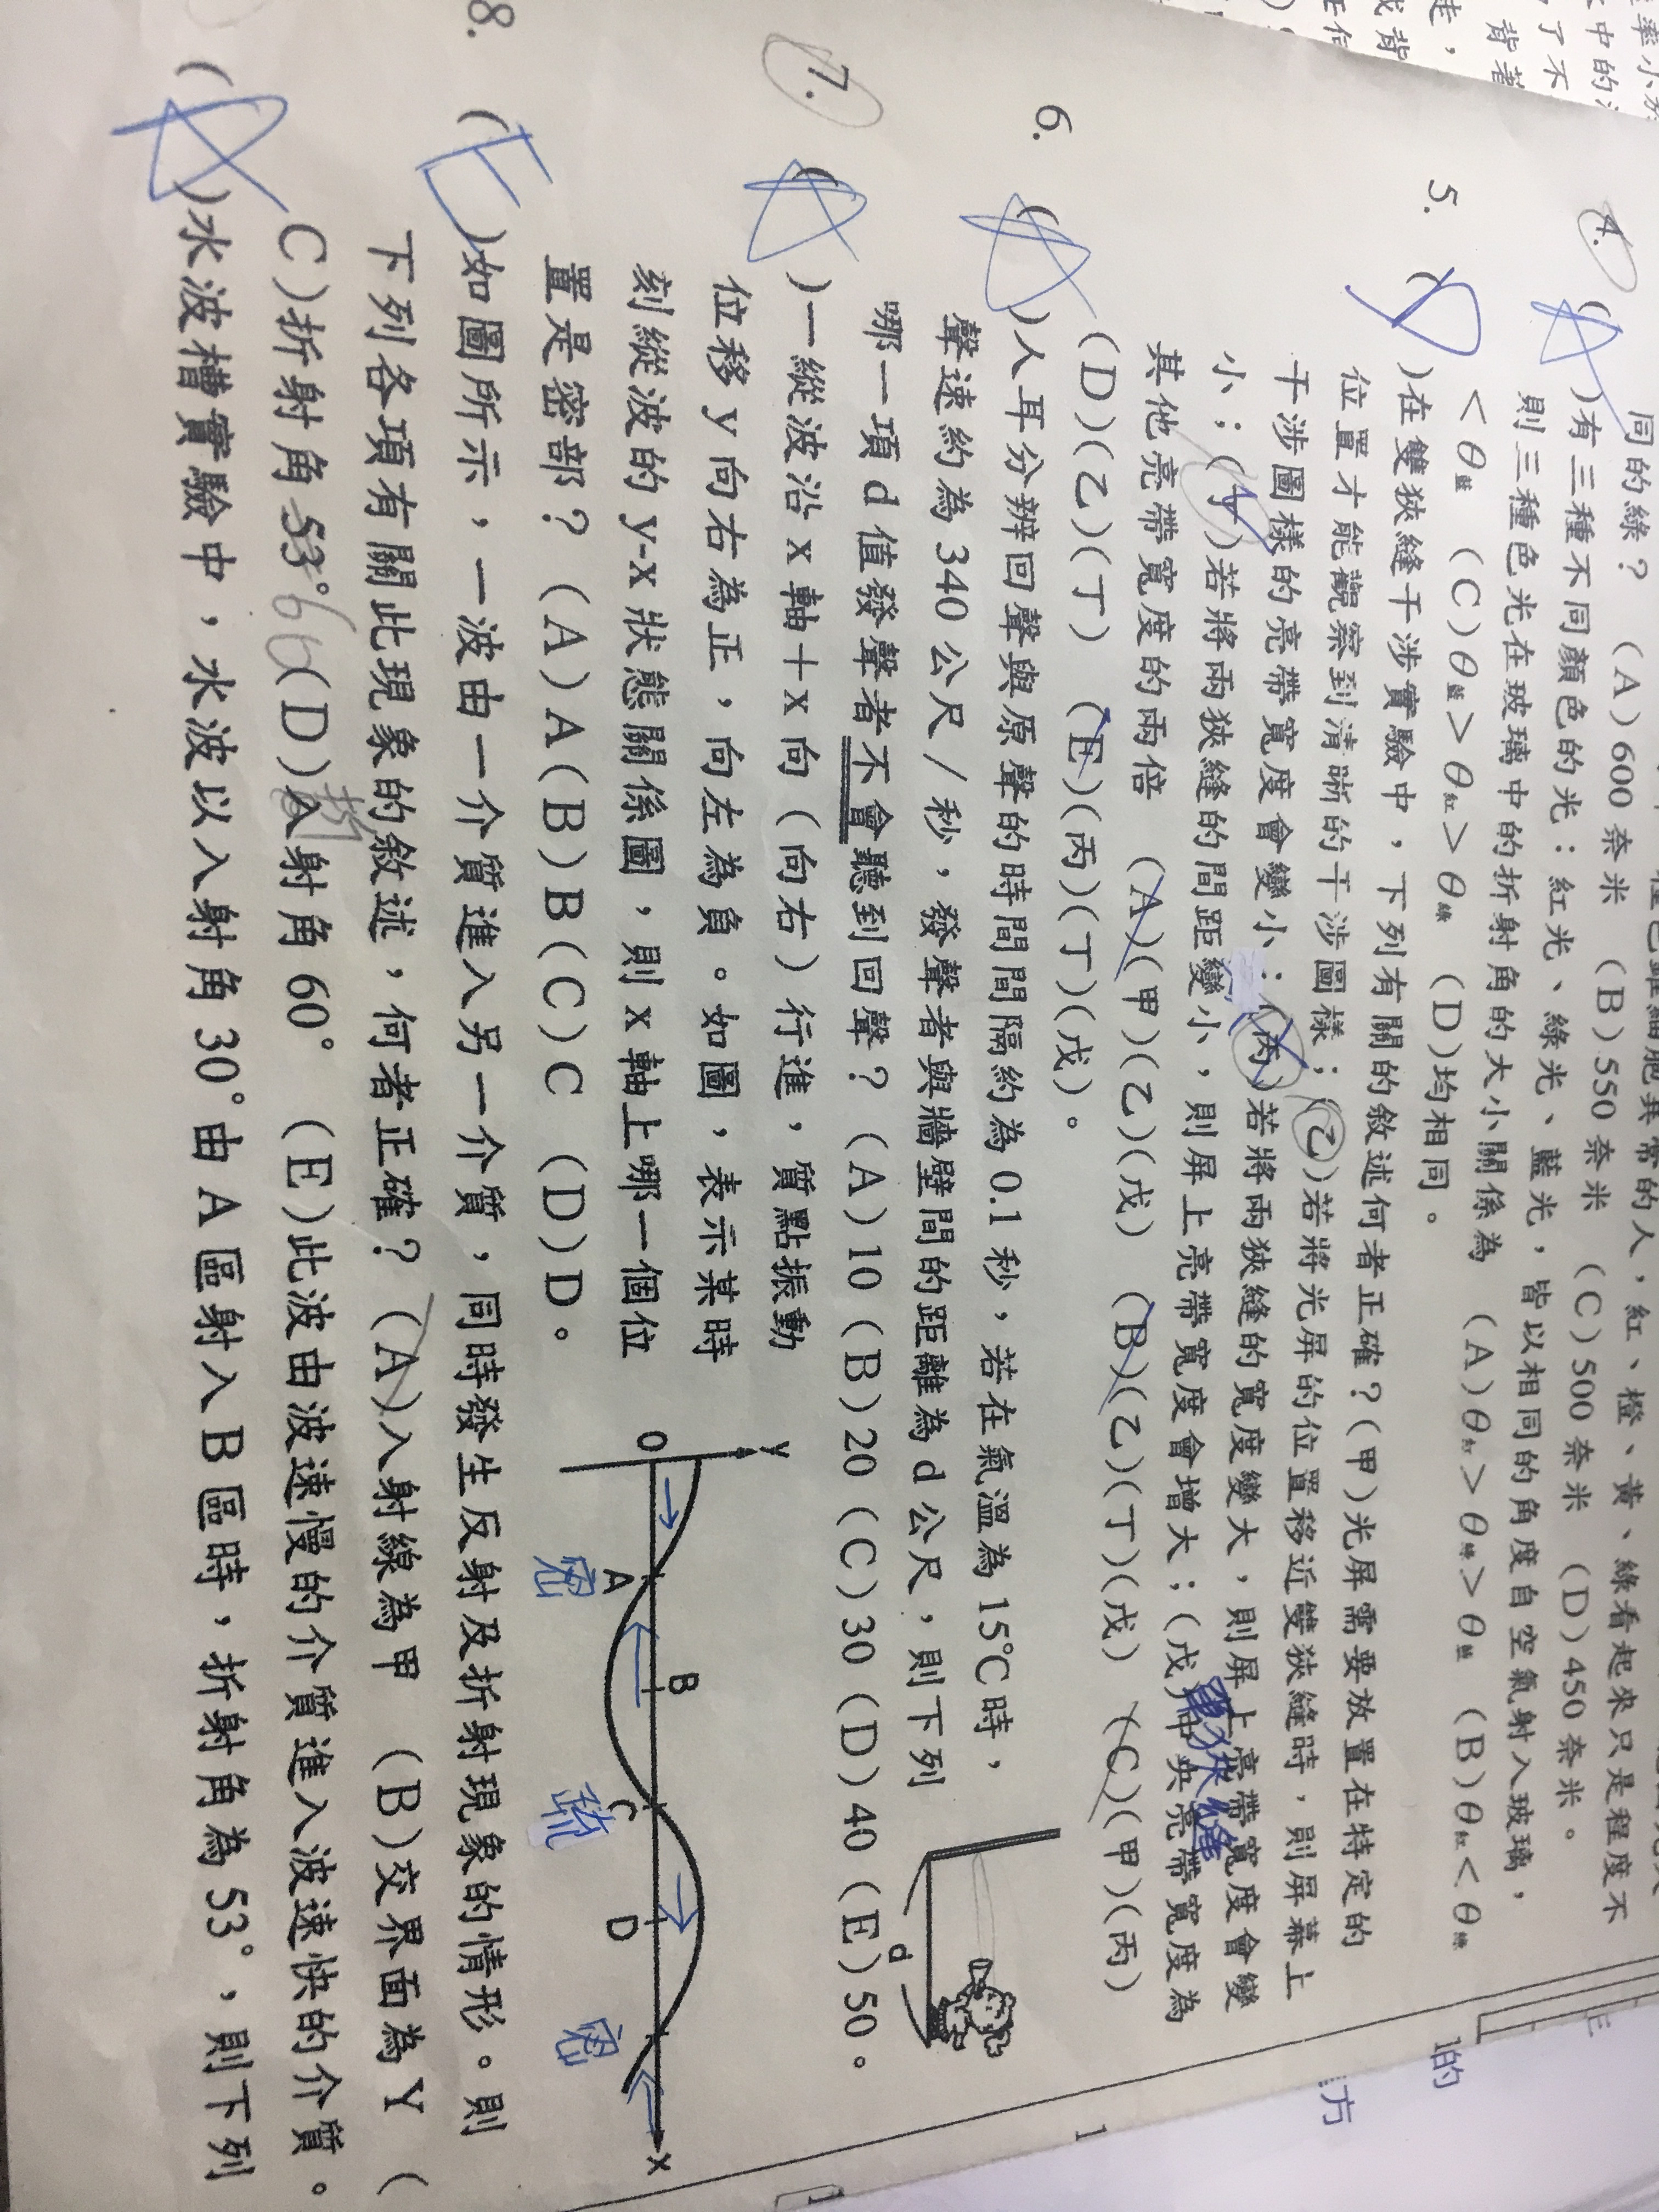 同的綠？ (A)600奈米 (B)550奈米 (C)500奈米 (D)450奈米。
4. (A)有三種不同顏色的光：紅光、綠光、藍光，皆以相同的角度自空氣射入玻璃，
則三種色光在玻璃中的折射角的大小關係為 (A)θ紅>θ綠>θ藍 (B)θ紅<θ綠
<θ藍 (C)θ藍>θ紅>θ綠 (D)均相同。
5. (D)在雙狹縫干涉實驗中，下列有關的敘述何者正確？(甲)光屏需要放置在特定的
位置才能觀察到清晰的干涉圖樣；(乙)若將光屏的位置移近雙狹縫時，則屏幕上
干涉圖樣的亮帶寬度會變小；(丙)若將兩狹縫的寬度變大，則屏上亮帶寬度會變
小；(丁)若將兩狹縫的間距變小，則屏上亮帶寬度會增大；(戊)中央亮帶寬度為
單狹縫
其他亮帶寬度的兩倍 (A)(甲)(乙)(戊) (B)(乙)(丁)(戊) (C)(甲)(丙)
(D)(乙)(丁) (E)(丙)(丁)(戊)。
6. (A)人耳分辨回聲與原聲的時間間隔約為0.1秒，若在氣溫為15℃時，
聲速約為340公尺/秒，發聲者與牆壁間的距離為d公尺，則下列
哪一項d值發聲者不會聽到回聲？(A)10(B)20(C)30(D)40(E)50。
d
7. (A)一縱波沿x軸＋x向（向右）行進，質點振動
位移y向右為正，向左為負。如圖，表示某時
刻縱波的y-x狀態關係圖，則x軸上哪一個位
置是密部？(A)A(B)B(C)C (D)D。
y
O A B C D x
密 疏 密
8. (E)如圖所示，一波由一介質進入另一介質，同時發生反射及折射現象的情形。則
下列各項有關此現象的敘述，何者正確？(A)入射線為甲 (B)交界面為Y (
C)折射角53° (D)入射角60° (E)此波由波速慢的介質進入波速快的介質。
(A)水波槽實驗中，水波以入射角30°由A區射入B區時，折射角為53°，則下列